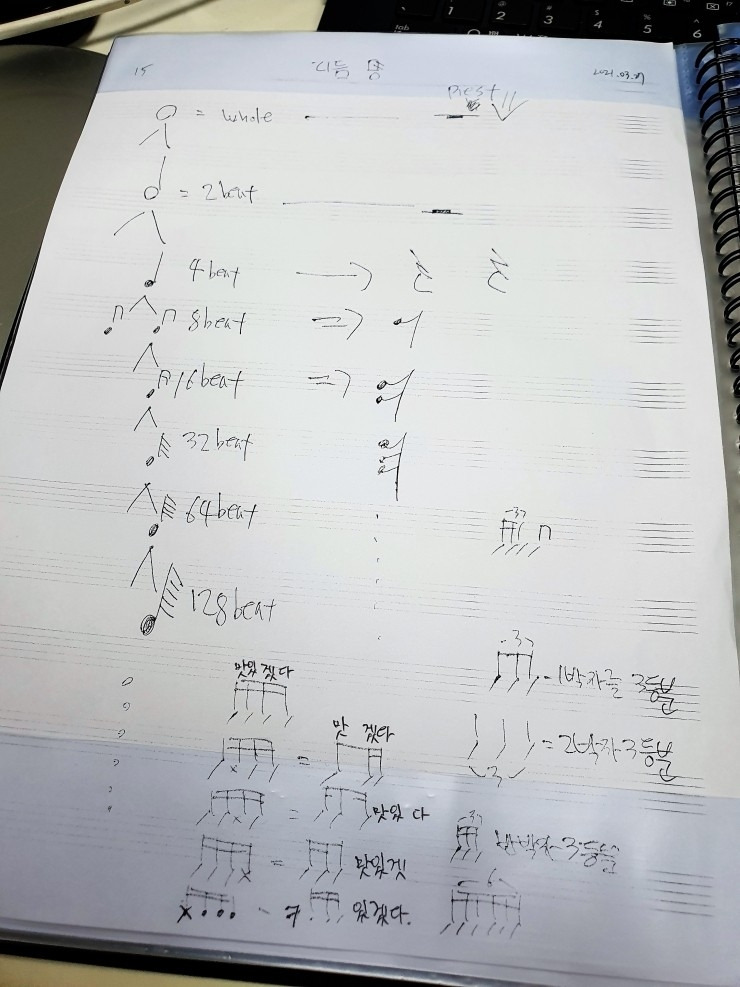 15 리듬 2021.03.27
= whole
= 2beat
4beat
8beat
16beat
32beat
64beat
-3-
128beat
-3-
- 1박자를 3등분
맛있겠다
맛 겠다
= 2박자 3등분
3
=
= 맛있 다
-3-
반박자 3등분
= 맛있겟
6
- 있겠다.